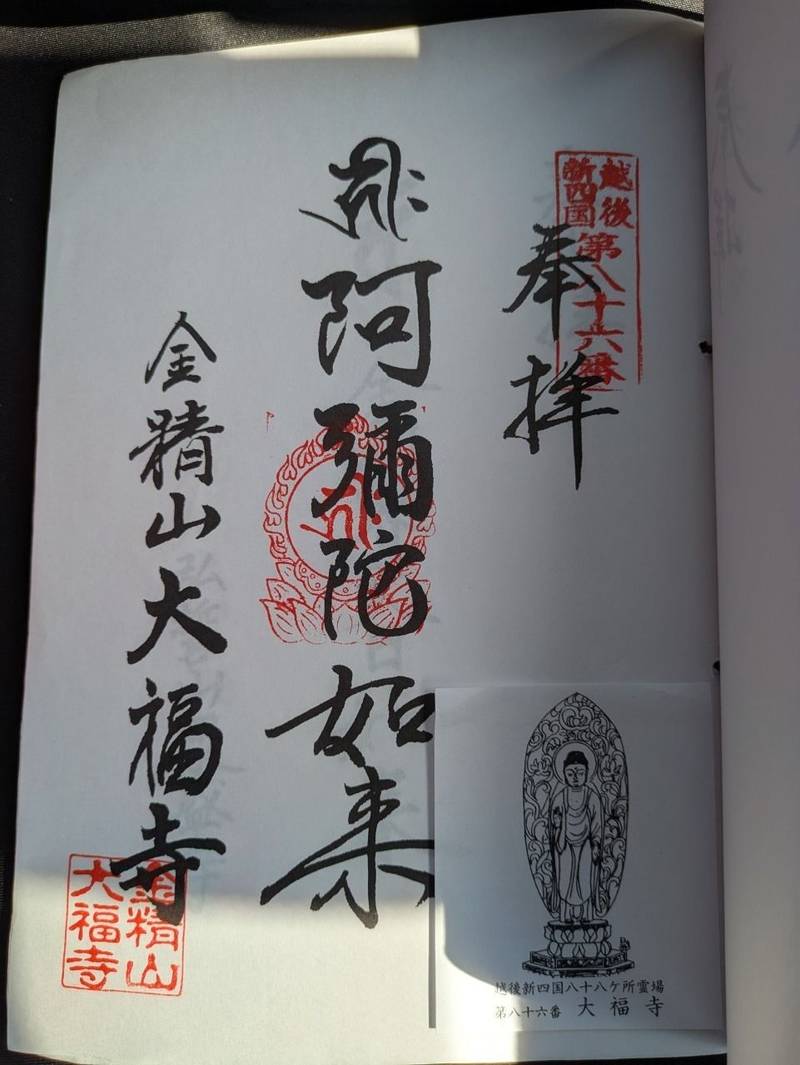 越後
新四国
第八十六番
奉拝
阿彌陀如来
金精山大福寺
金精山
大福寺
越後新四国八十八ケ所霊場
第八十六番 大福寺